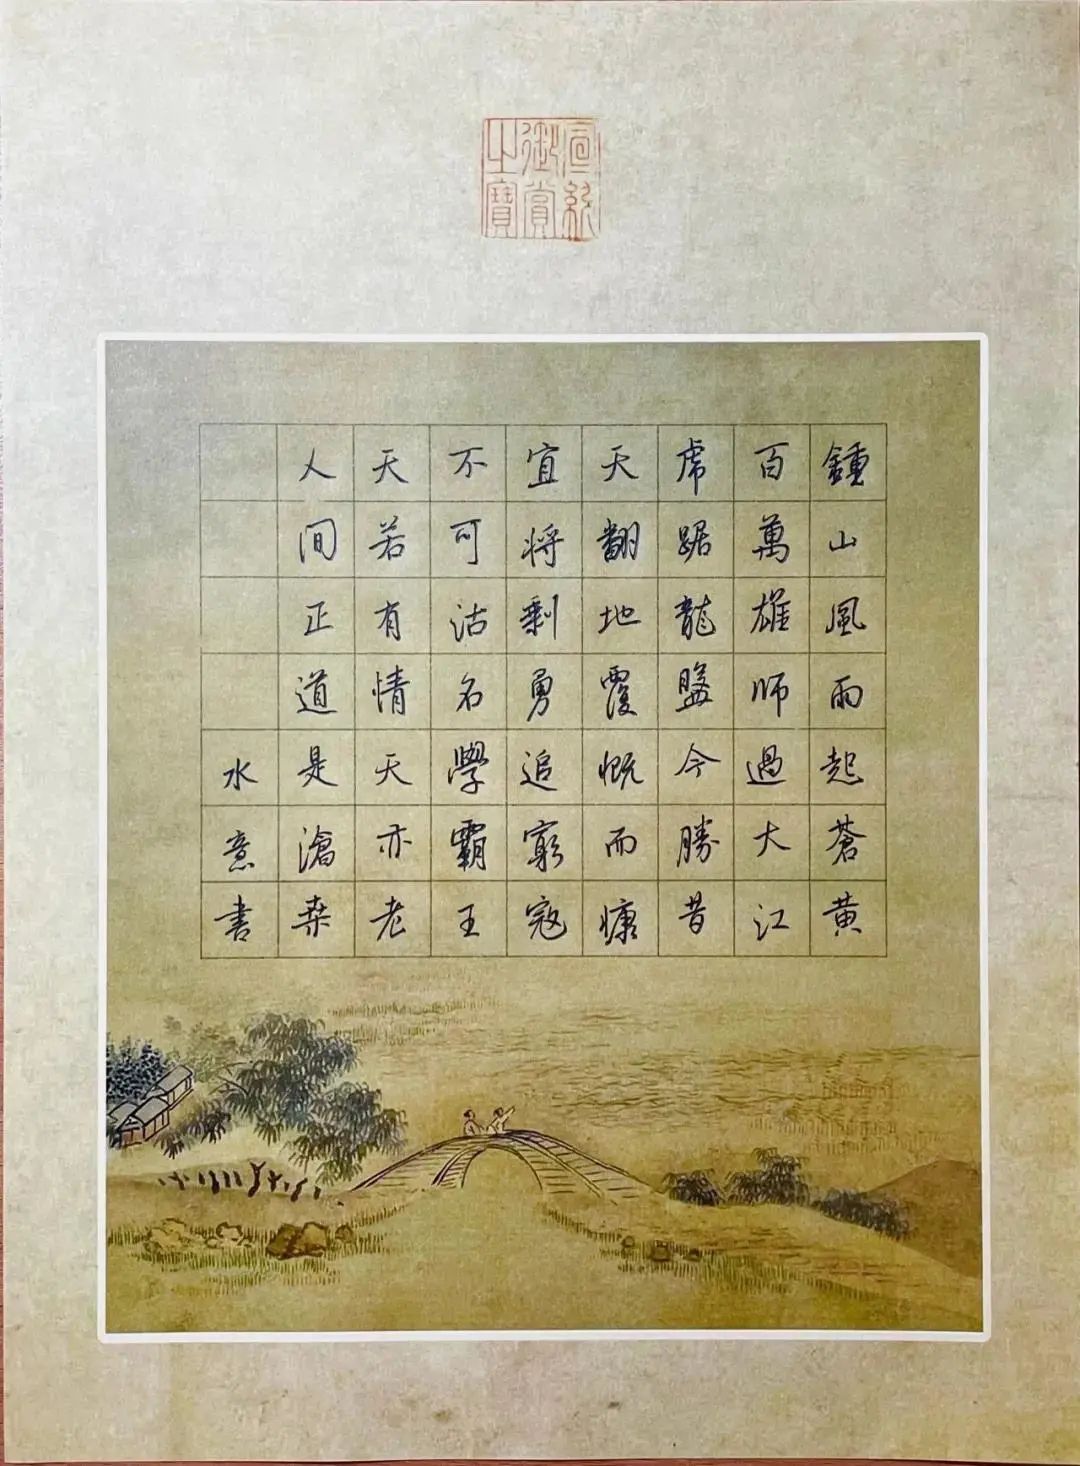 宣統
御賞
之寶
鍾山風雨起蒼黃
百萬雄師過大江
虎踞龍盤今勝昔
天翻地覆慨而慷
宜将剩勇追窮寇
不可沽名學霸王
天若有情天亦老
人间正道是滄桑
水意書